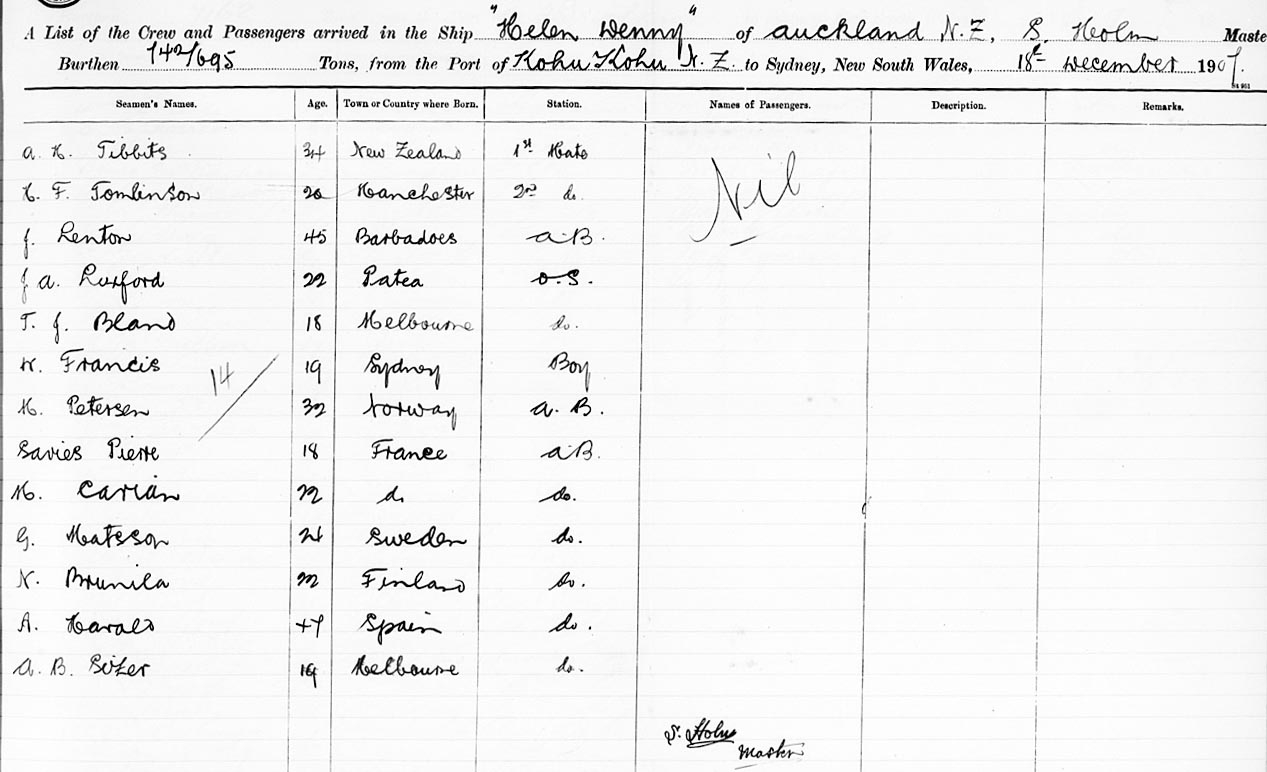 A List of the Crew and Passengers arrived in the Ship "Helen Denny" of Auckland N.Z, S. Holm Maste
Burthen 742/695 Tons, from the Port of Kohu Kohu N.Z. to Sydney, New South Wales, 18th December 1907.
Seamen's Names. Age. Town or Country where Born. Station. Names of Passengers. Description. Remarks.
A. H. Tibbits 34 New Zealand 1st Mate Nil
H. F. Tomlinson Manchester 2nd do
J. Lenton 45 Barbadoes A.B.
J A. Luxford 22 Patea O.S.
T. J. Bland 18 Melbourne do.
W. Francis 19 Sydney Boy
14
H. Petersen 32 Norway A. B.
Pierre 18 France A.B.
M. Carian 22 do do.
G. Matsson Sweden do.
N. Brunila 22 Finland do.
A. 47 Spain do.
A. B. 19 Melbourne do.
S. Holm
Master